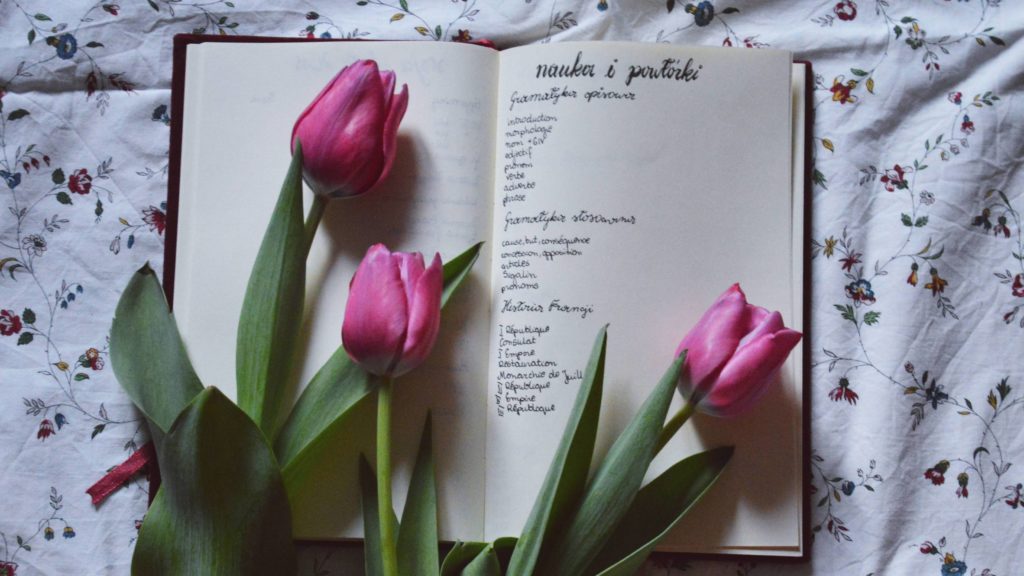 nauka i powtórki
Gramatyka opisowa
introduction
morphologie
nom + GN
adjectif
pronom
verbe
adverbe
phrase
Gramatyka stosowana
cause, but, conséquence
concession, opposition
articles
pronoms
Historia Francji
I République
Consulat
I Empire
Restauration
Monarchie de Juill
II République
II Empire
III République